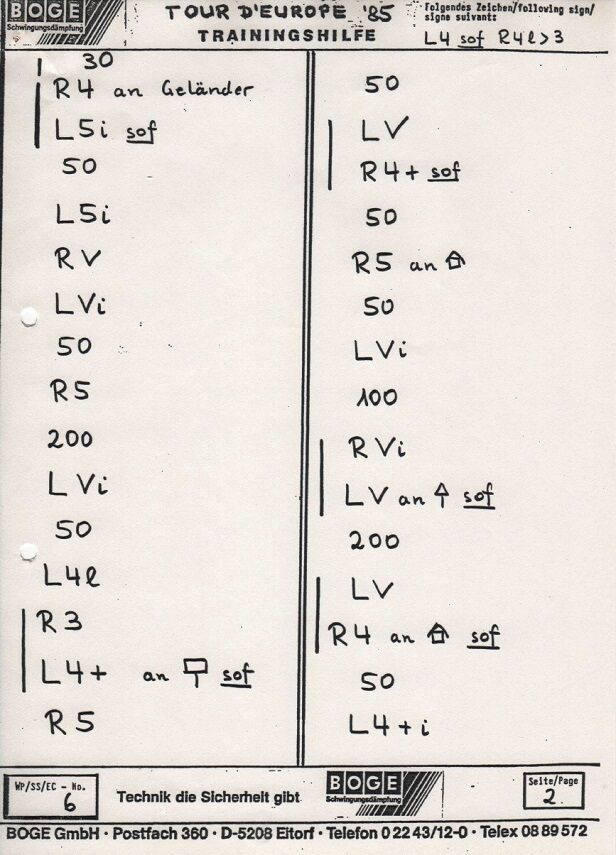 BOGE
Schwingungsdämpfung
TOUR D'EUROPE '85
TRAININGSHILFE
Folgendes Zeichen/following sign/
signe suivant:
L4 sof R4l>3
30
R4 an Geländer
L5i sof
50
L5i
RV
LVi
50
R5
200
LVi
50
L4l
R3
L4+ an sof
R5
50
LV
R4+ sof
50
R5 an
50
LVi
100
RVi
LV an sof
200
LV
R4 an sof
50
L4+i
WP/SS/EC - No.
6
Technik die Sicherheit gibt
BOGE
Schwingungsdämpfung
Seite/Page
2.
BOGE GmbH · Postfach 360 · D-5208 Eitorf · Telefon 0 22 43/12-0 · Telex 08 89 572